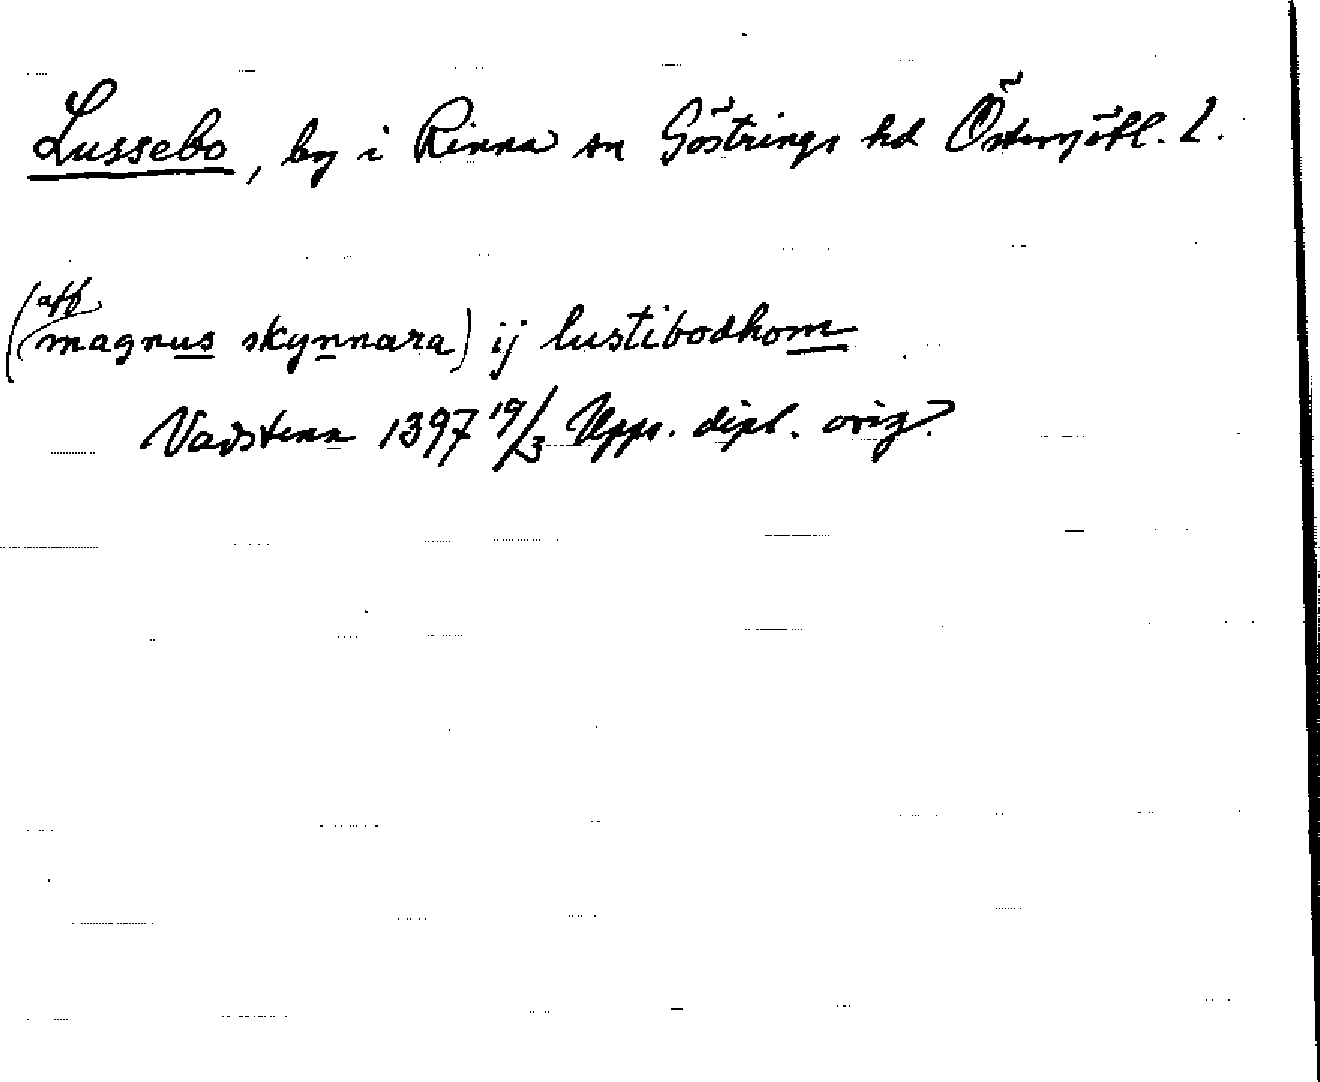 Lussebo, by i Rinna sn Göstrings hd Östergötl. l.
(aff magnus skynnara) ij lustibodhom
Vadstena 1397 19/3 Upps. dipl. orig.